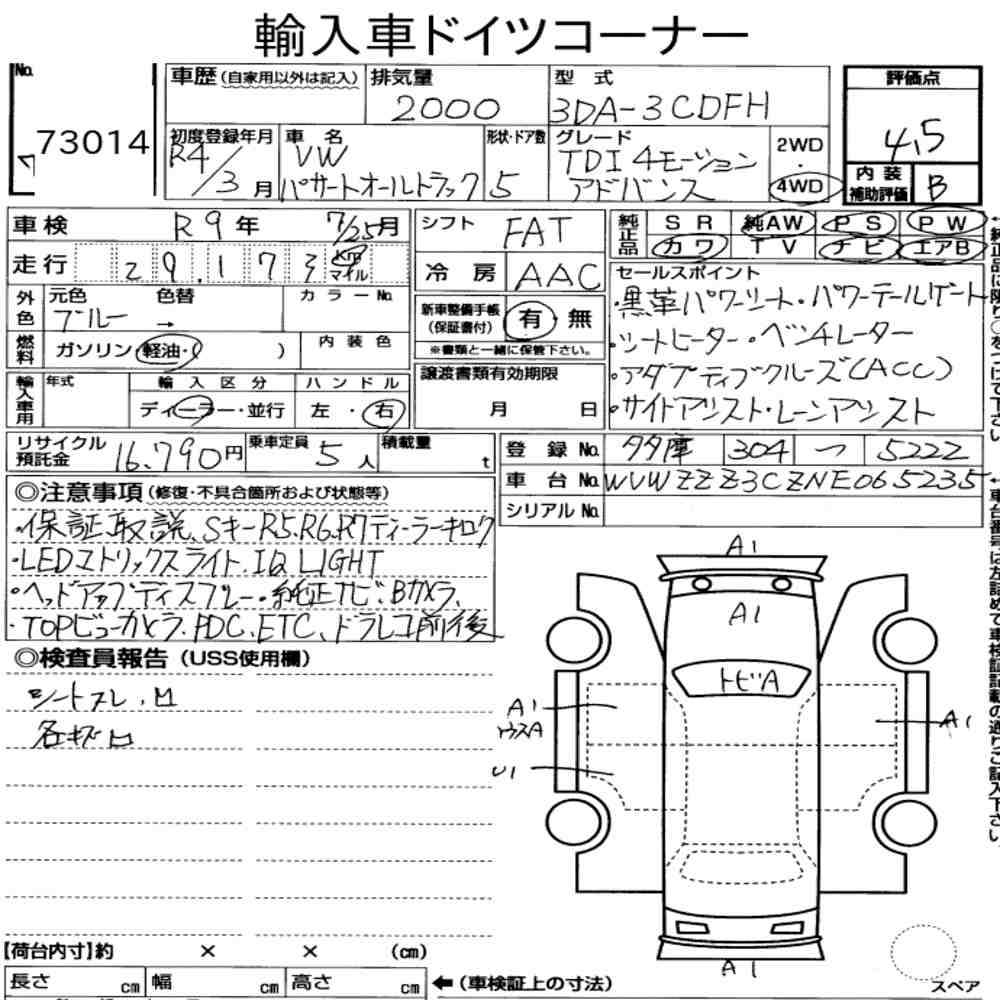 輸入車ドイツコーナー
No. 73014
車歴(自家用以外は記入)
排気量 2000
型式 3DA-3CDFH
初度登録年月 R4/3月
車名 VW パサートオールトラック
形状・ドア数 5
グレード TDI 4モーション アドバンス
2WD・4WD
評価点 4.5
内装補助評価 B
車検 R9年 7/25月
走行 29,173 km マイル
外色 元色 ブルー 色替 → カラーNo.
燃料 ガソリン 軽油・( ) 内装色
輸入車用 年式 輸入区分 ディーラー・並行 ハンドル 左・右
シフト FAT
冷房 AAC
新車整備手帳(保証書付) 有 無
※書類と一緒に保管下さい。
譲渡書類有効期限 月 日
純正品 SR 純AW PS PW
カワ TV ナビ エアB
セールスポイント
・黒革パワーシート・パワーテールゲート
・シートヒーター・ベンチレーター
・アダプティブクルーズ(ACC)
・サイドアシスト・レーンアシスト
リサイクル預託金 16,790円 乗車定員 5人 積載量 t
登録No. 多摩 304 つ 5222
車台No. WVWZZZ3CZNE065235
シリアルNo.
◎注意事項(修復・不具合箇所および状態等)
・保証、取説、Sキー R5.R6.R7ディーラーキロク
・LEDマトリックスライト、IQ.LIGHT
・ヘッドアップディスプレー・純正ナビ、Bカメラ、
・TOPビューカメラ、PDC、ETC、ドラレコ前後
◎検査員報告(USS使用欄)
シートスレ、
各キズ
A1
A1
トビA
A1
ウスA
U1
A1
A1
スペア
【荷台内寸】約 × × (cm)
長さ cm 幅 cm 高さ cm ←(車検証上の寸法)